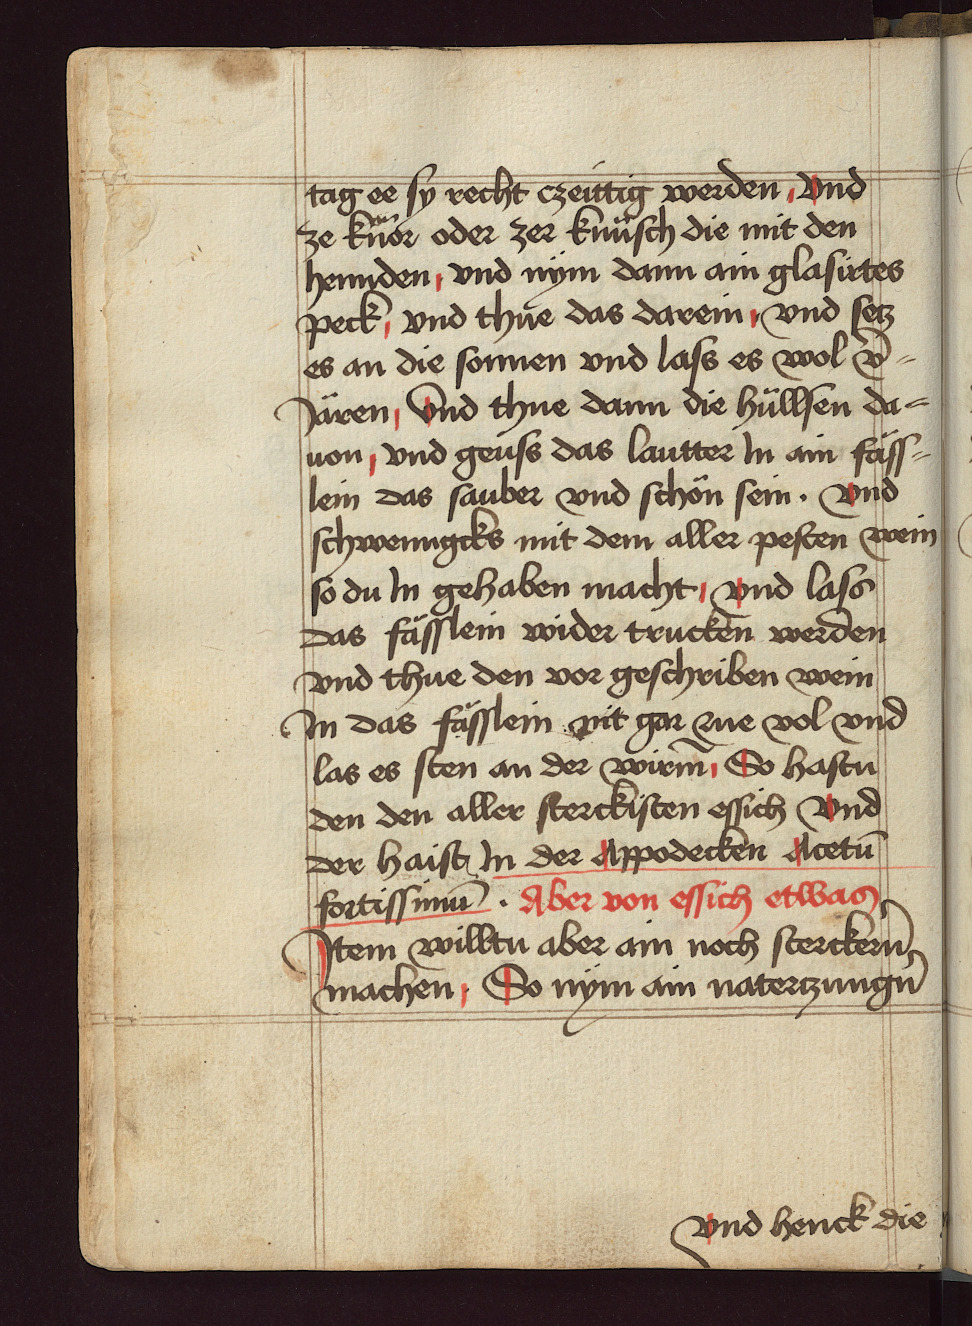 tag ee sy recht czeittig werden, Vnd
ze knör oder zer knüsch die mit den
hennden, vnd nÿm dann ain glasirtes
peck, vnd thue das darein, vnd setz
es an die sonnen vnd lass es wol v̄=
Jären, Vnd thue dann die hüllsen da=
uon, vnd geuss das lautter In ain fäss=
lein das sauber vnd schön sein. Vnd
schwenngcks mit dem aller pesten wein
so du In gehaben macht, Vnd lass
das fässlein wider trucken werden
vnd thue den vor geschriben wein
In das fässlein nit gar zue vol vnd
las es sten an der wirm̄, So hastu
den den aller sterckisten essich Vnd
der haist In der Appodecken Acetū
fortissimū. Aber von essich etwas
Item willtu aber ain noch sterckern̄
machen, So nÿm ain natertzungn̄
Vnd henck die